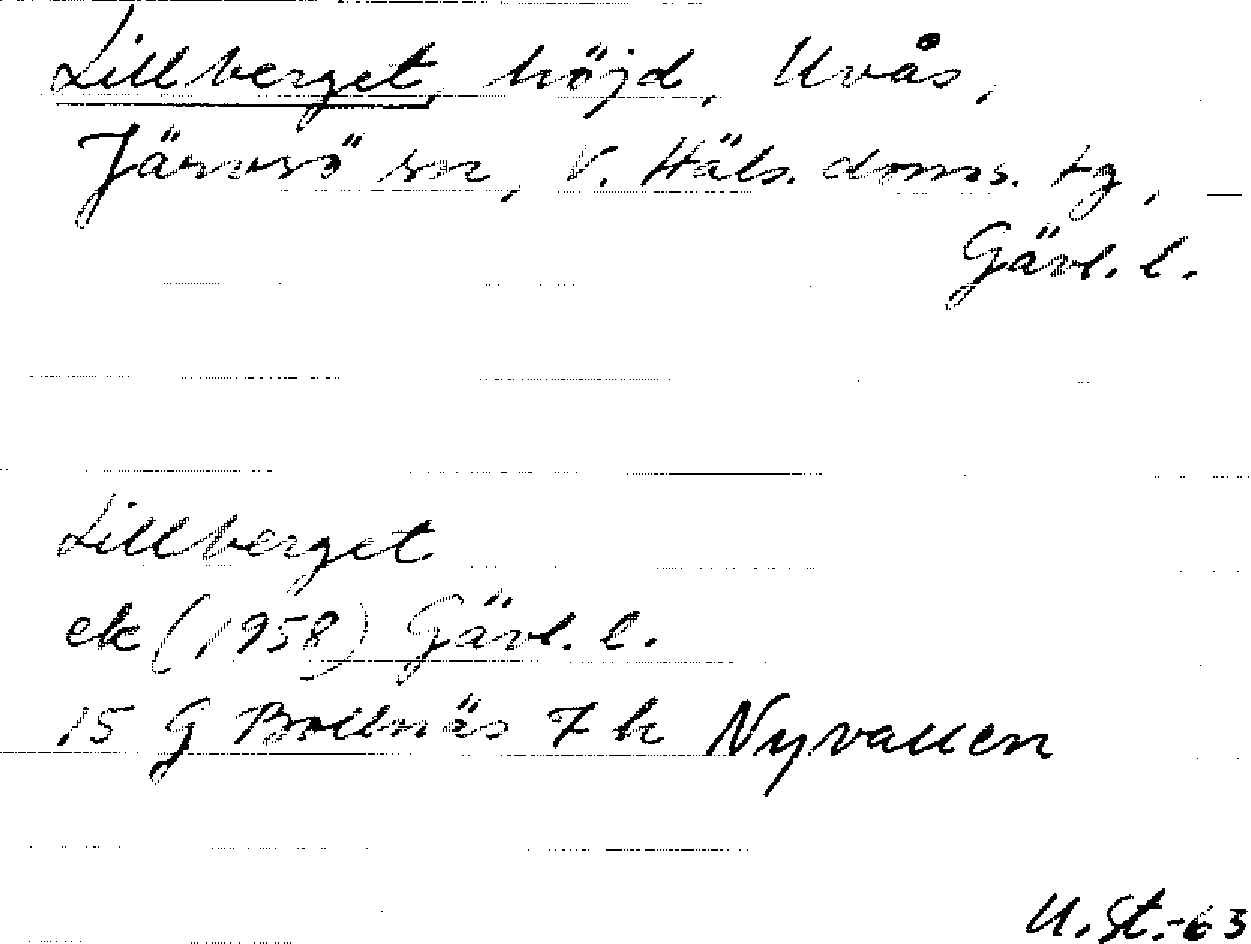 Lillberget, höjd, Uvås,
Järvsö sn, V. Häls. doms. tg,
Gävl. l.
Lillberget
ek (1958) Gävl. l.
15 G Bollnäs 7 h Nyvallen
U. St. -63